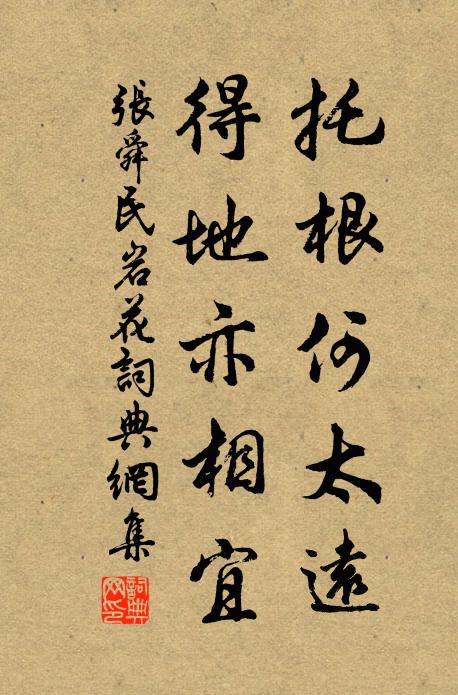 托根何太遠
得地亦相宜
張舜民岩花詞典網集
詞典網印